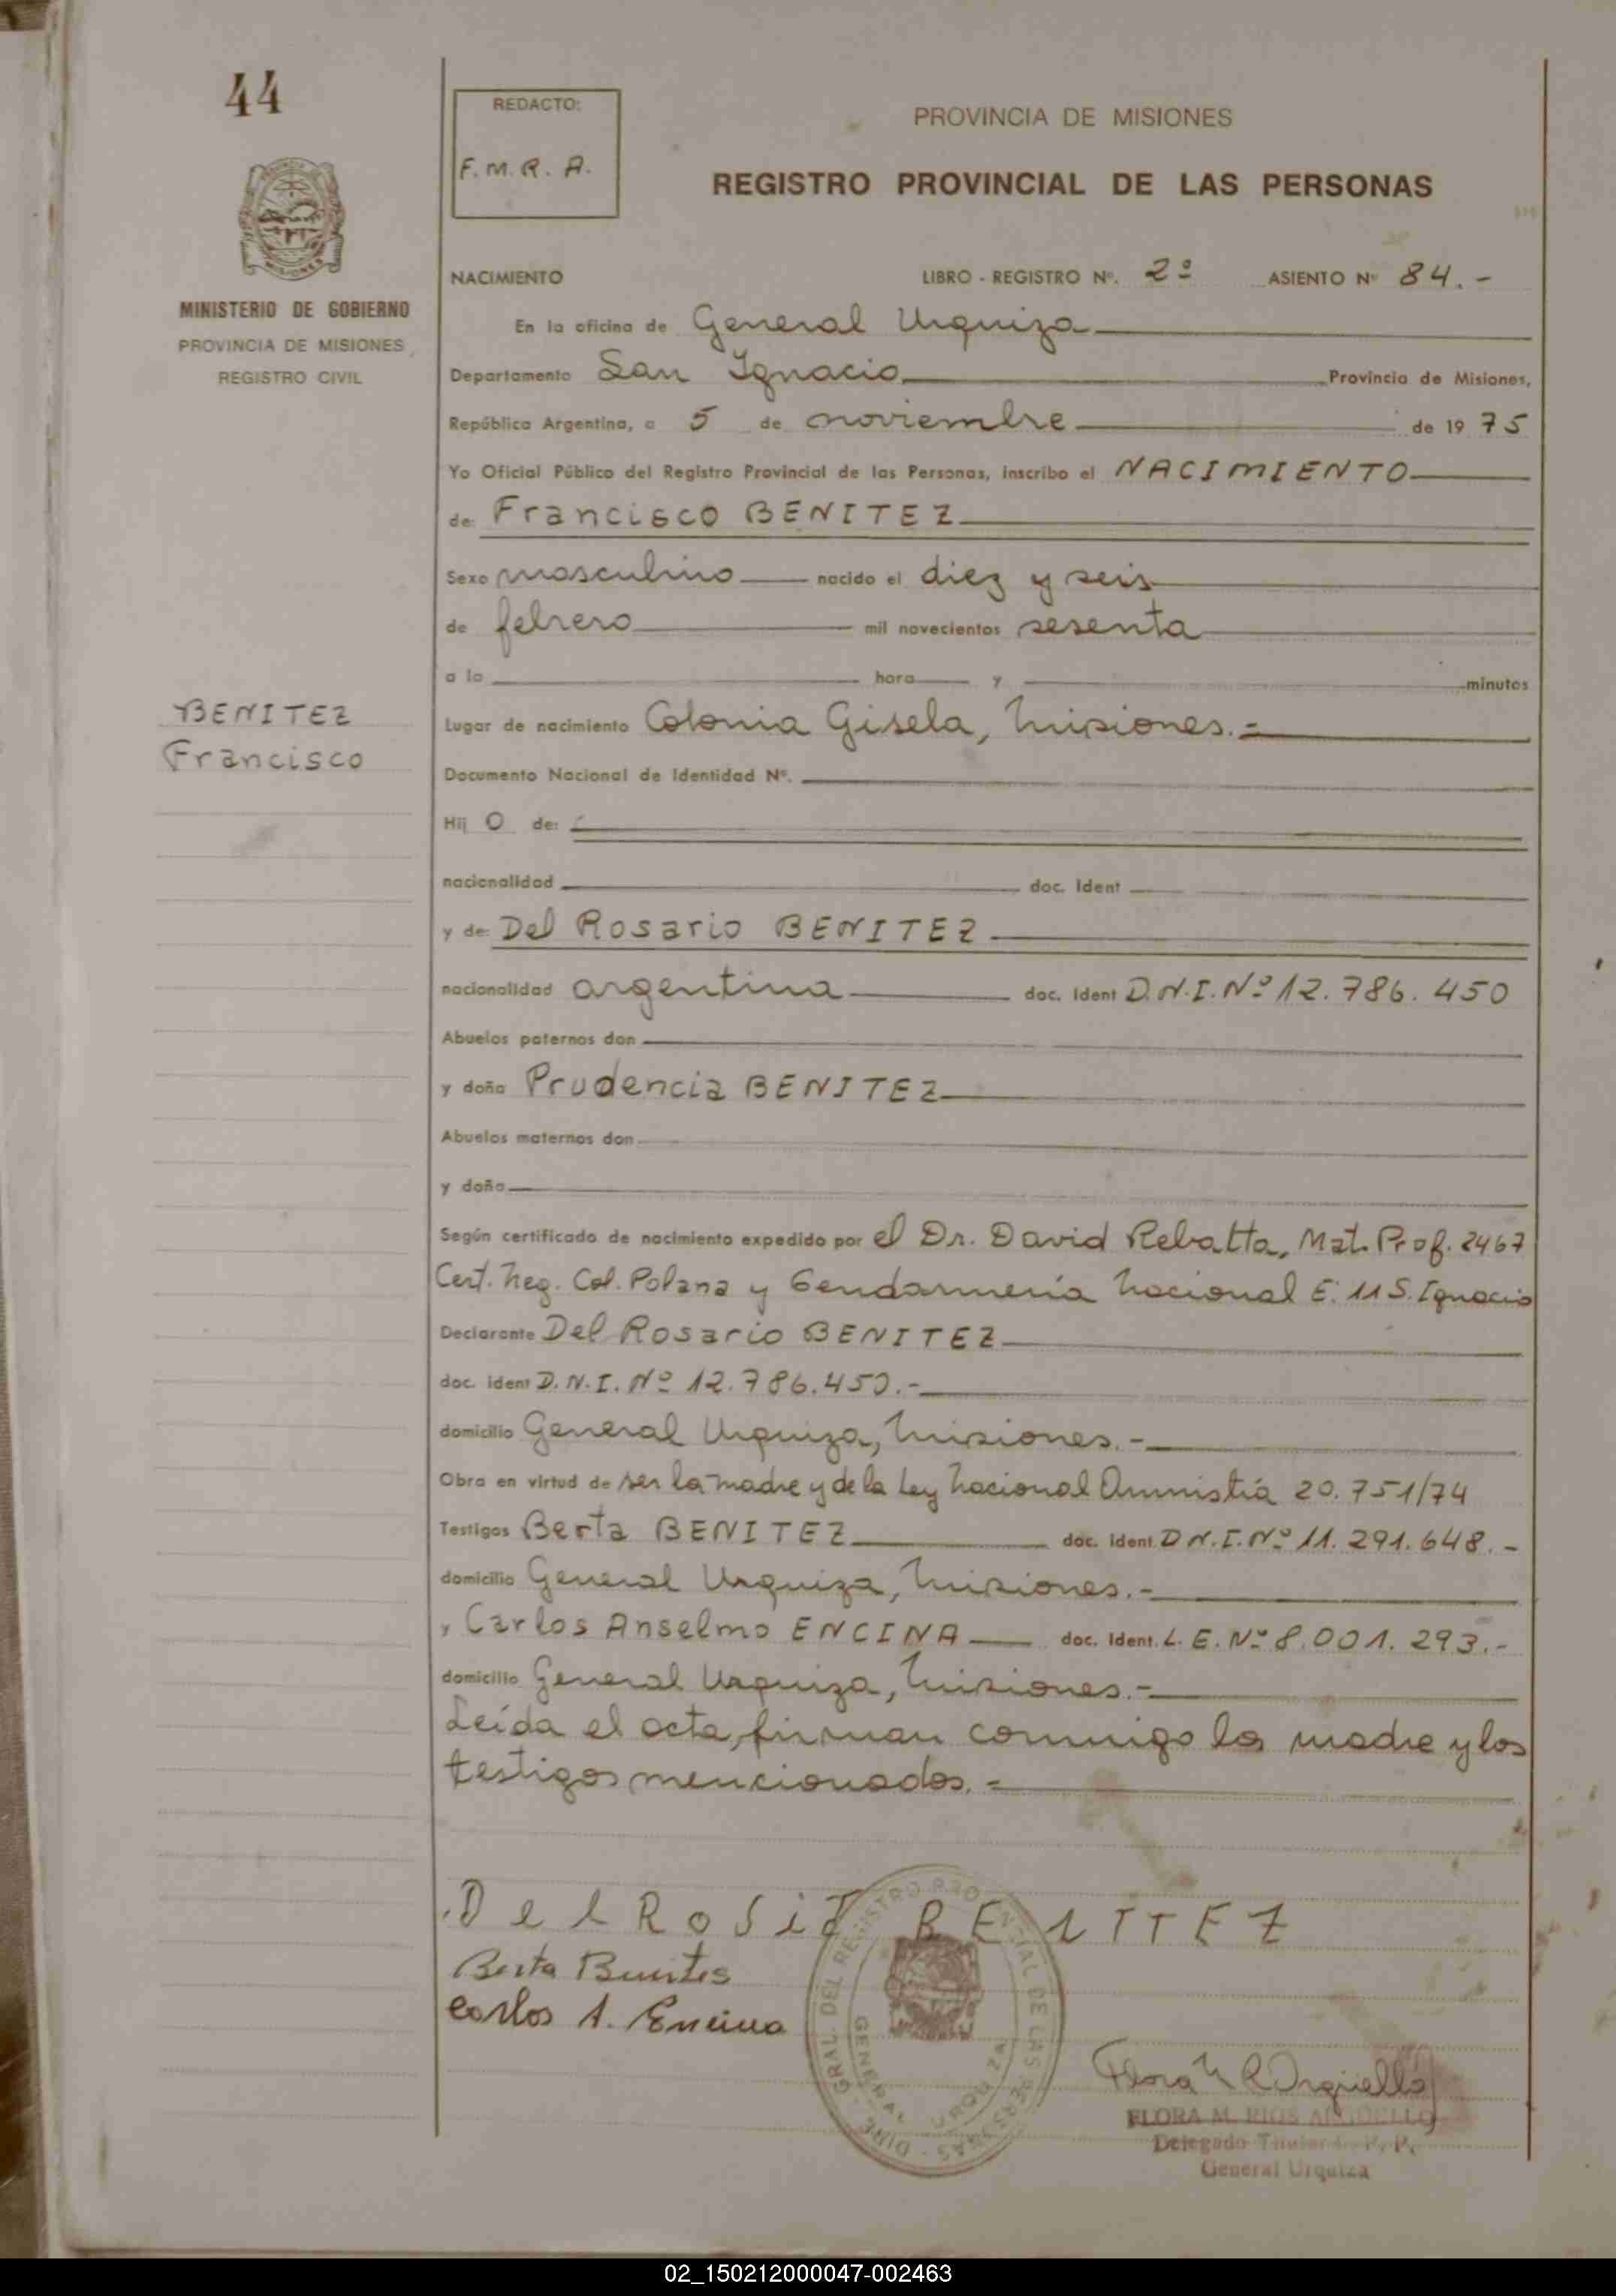 44
REDACTO:
F. M. R. A.
PROVINCIA DE MISIONES
REGISTRO PROVINCIAL DE LAS PERSONAS
MINISTERIO DE GOBIERNO
PROVINCIA DE MISIONES
REGISTRO CIVIL
NACIMIENTO LIBRO - REGISTRO Nº. 2º ASIENTO Nº 84.-
En la oficina de General Urquiza
Departamento San Ignacio Provincia de Misiones,
República Argentina, a 5 de noviembre de 1975
Yo Oficial Público del Registro Provincial de las Personas, inscribo el NACIMIENTO
de: Francisco BENITEZ
Sexo masculino nacido el diez y seis
de febrero mil novecientos sesenta
a la hora y minutos
BENITEZ
Francisco
Lugar de nacimiento Colonia Gisela, Misiones.=
Documento Nacional de Identidad Nº.
Hij o de:
nacionalidad doc. Ident
y de: Del Rosario BENITEZ
nacionalidad argentina doc. Ident D.N.I. Nº 12.786.450
Abuelos paternos don
y doña Prudencia BENITEZ
Abuelos maternos don
y doña
Según certificado de nacimiento expedido por el Dr. David Rebatta, Mat. Prof. 2467
Cert. Neg. Col. Polana y Gendarmería Nacional E. 11 S. Ignacio
Declarante Del Rosario BENITEZ
doc. ident D.N.I. Nº 12.786.450.-
domicilio General Urquiza, Misiones.-
Obra en virtud de ser la madre y de la Ley Nacional Amnistía 20.751/74
Testigos Berta BENITEZ doc. Ident. D.N.I. Nº 11.291.648.-
domicilio General Urquiza, Misiones.-
y Carlos Anselmo ENCINA doc. Ident. L.E. Nº 8.001.293.-
domicilio General Urquiza, Misiones.-
Leída el acta, firman conmigo la madre y los
testigos mencionados.=
Del Rosio BENITEZ
Berta Benites
Carlos A. Encina
DIRE. GRAL. DEL REGISTRO PROVINCIAL DE LAS PERSONAS
GENERAL URQUIZA
Flora M R Argüello
FLORA M. RIOS ARGUELLO
Delegado Titular R. P. P.
General Urquiza
02_150212000047-002463